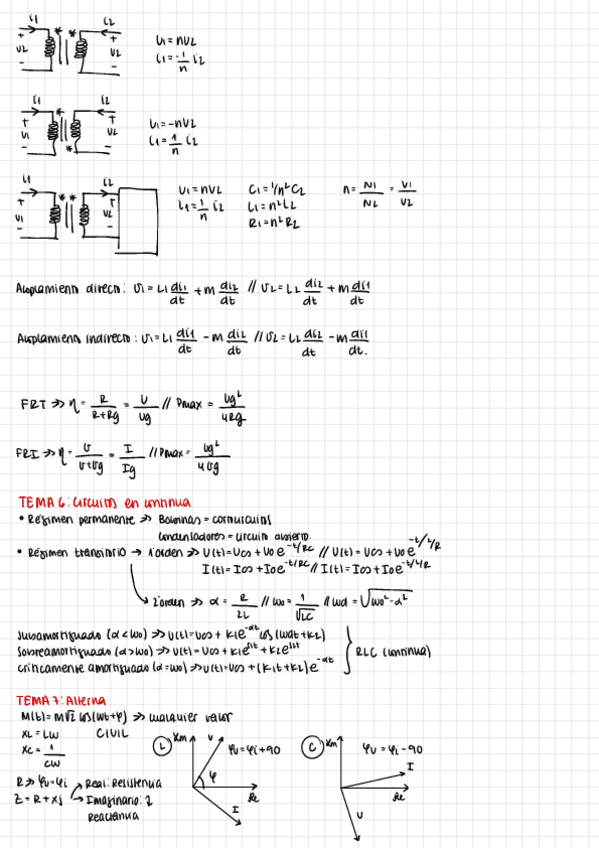 i1 i2
+ * * +
U2 U2 U1 = nU2
- - i1 = -1/n i2
i1 i2
+ * +
U1 U2 U1 = -nU2
- * - i1 = 1/n i2
i1 i2
+ * * + U1 = nU2 C1 = 1/n² C2 n = N1/N2 = U1/U2
U1 U2 i1 = 1/n i2 L1 = n² L2
- - R1 = n² R2
Acoplamiento directo: U1 = L1 di1/dt + M di2/dt // U2 = L2 di2/dt + M di1/dt
Acoplamiento indirecto: U1 = L1 di1/dt - M di2/dt // U2 = L2 di2/dt - M di1/dt.
FRT >> η = R/R+Rg = U/Ug // Pmax = Ug²/4Rg
FRI >> η = G/G+Gg = I/Ig // Pmax = Ug²/4Gg
TEMA 6: Circuitos en continua
• Régimen permanente >> Bobinas = cortocircuitos
Condensadores = circuito abierto.
• Régimen transitorio → 1ºorden >> U(t) = U∞ + U0 e^-t/RC // U(t) = U∞ + U0 e^-t/L/R
I(t) = I∞ + I0 e^-t/RC // I(t) = I∞ + I0 e^-t/L/R
2ºorden >> α = R/2L // ω0 = 1/√LC // ωd = √ω0² - α²
Subamortiguado (α < ω0) >> U(t) = U∞ + K1 e^-αt cos(ωdt + K2)
Sobreamortiguado (α > ω0) >> U(t) = U∞ + K1 e^s1t + K2 e^s2t } RLC (continua)
Críticamente amortiguado (α = ω0) >> U(t) = U∞ + (K1t + K2) e^-αt
TEMA 7: Alterna
M(t) = M√2 cos(ωt + φ) >> cualquier valor
XL = Lω CIVIL
XC = 1/Cω
L Xm U φu = φi + 90
φ Re I
C Xm φu = φi - 90
I Re U
R >> φu = φi
Z = R + Xj → Real: Resistencia
→ Imaginario: Z
Reactancia